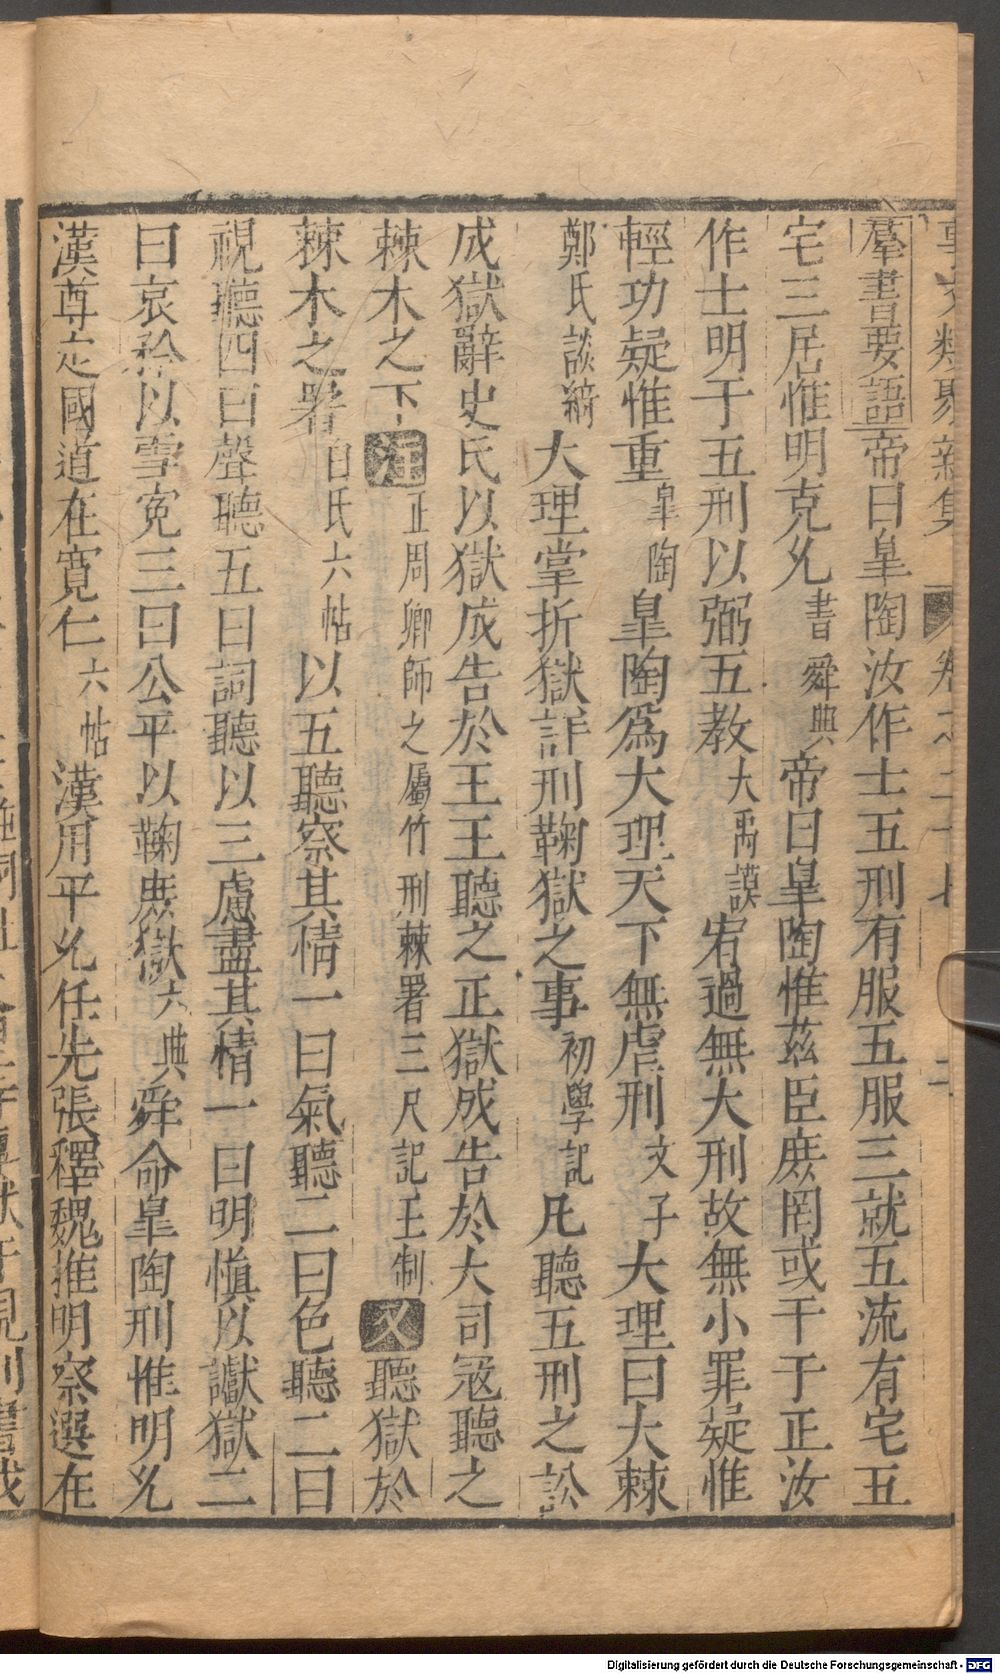 羣書要語帝曰臯陶汝作士五刑有服五服三就五流有宅五
宅三居惟明克允書舜典帝曰臯陶惟兹臣庶罔或干于正汝
作士明于五刑以弼五教大禹謨宥過無大刑故無小罪疑惟
輕功疑惟重臯陶臯陶爲大理天下無虐刑文子大理曰大棘
鄭氏談綺大理掌折獄詳刑鞠獄之事初學記凡聽五刑之訟
成獄辭史氏以獄成告於王王聽之正獄成告於大司寇聽之
棘木之下注正周鄉師之屬竹刑棘署三尺記王制又聽獄於
棘木之署白氏六帖以五聽察其情一曰氣聽二曰色聽三曰
視聽四曰聲聽五曰詞聽以三慮盡其情一曰明愼以讞獄二
曰哀矜以雪寃三曰公平以鞠庶獄六典舜命臯陶刑惟明允
漢尊定國道在寛仁六帖漢用平允任先張釋魏推明察選在
Digitalisierung gefördert durch die Deutsche Forschungsgemeinschaft - DFG